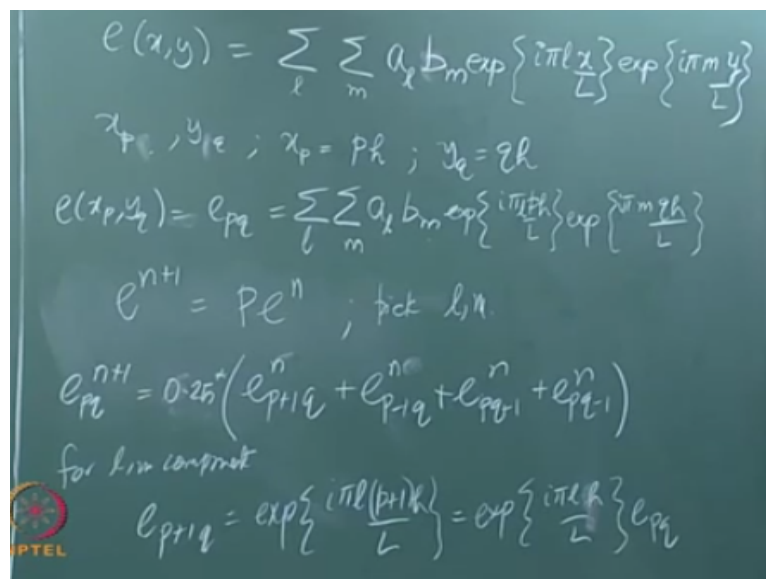 e(x,y) = Σ_l Σ_m a_l b_m exp{iπl x/L} exp{iπm y/L}
x_p , y_q ; x_p = ph ; y_q = qh
e(x_p,y_q) = e_pq = Σ_l Σ_m a_l b_m exp{iπlph/L} exp{iπm qh/L}
e^{n+1} = Pe^n ; pick l,m.
e_pq^{n+1} = 0.25*(e^n_{p+1q} + e^n_{p-1q} + e^n_{pq+1} + e^n_{pq-1})
for l,m component
e_{p+1q} = exp{iπl(p+1)h/L} = exp{iπlh/L} e_pq
NPTEL